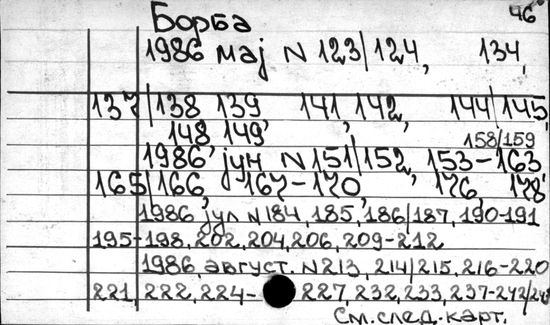 Борба 46
1986 мај N 123/124, 134,
137/138 139 141, 142, 144/145,
148 149 158/159
1986, јун N 151/152, 153-163
165/166, 167-170, 176, 178
1986 јул N 184, 185, 186/187, 190-191
195-198, 202, 204, 206, 209-212
1986, август. N 213, 214/215, 216-220
221, 222, 224- 227, 232, 233, 237-242/
См. след. карт.